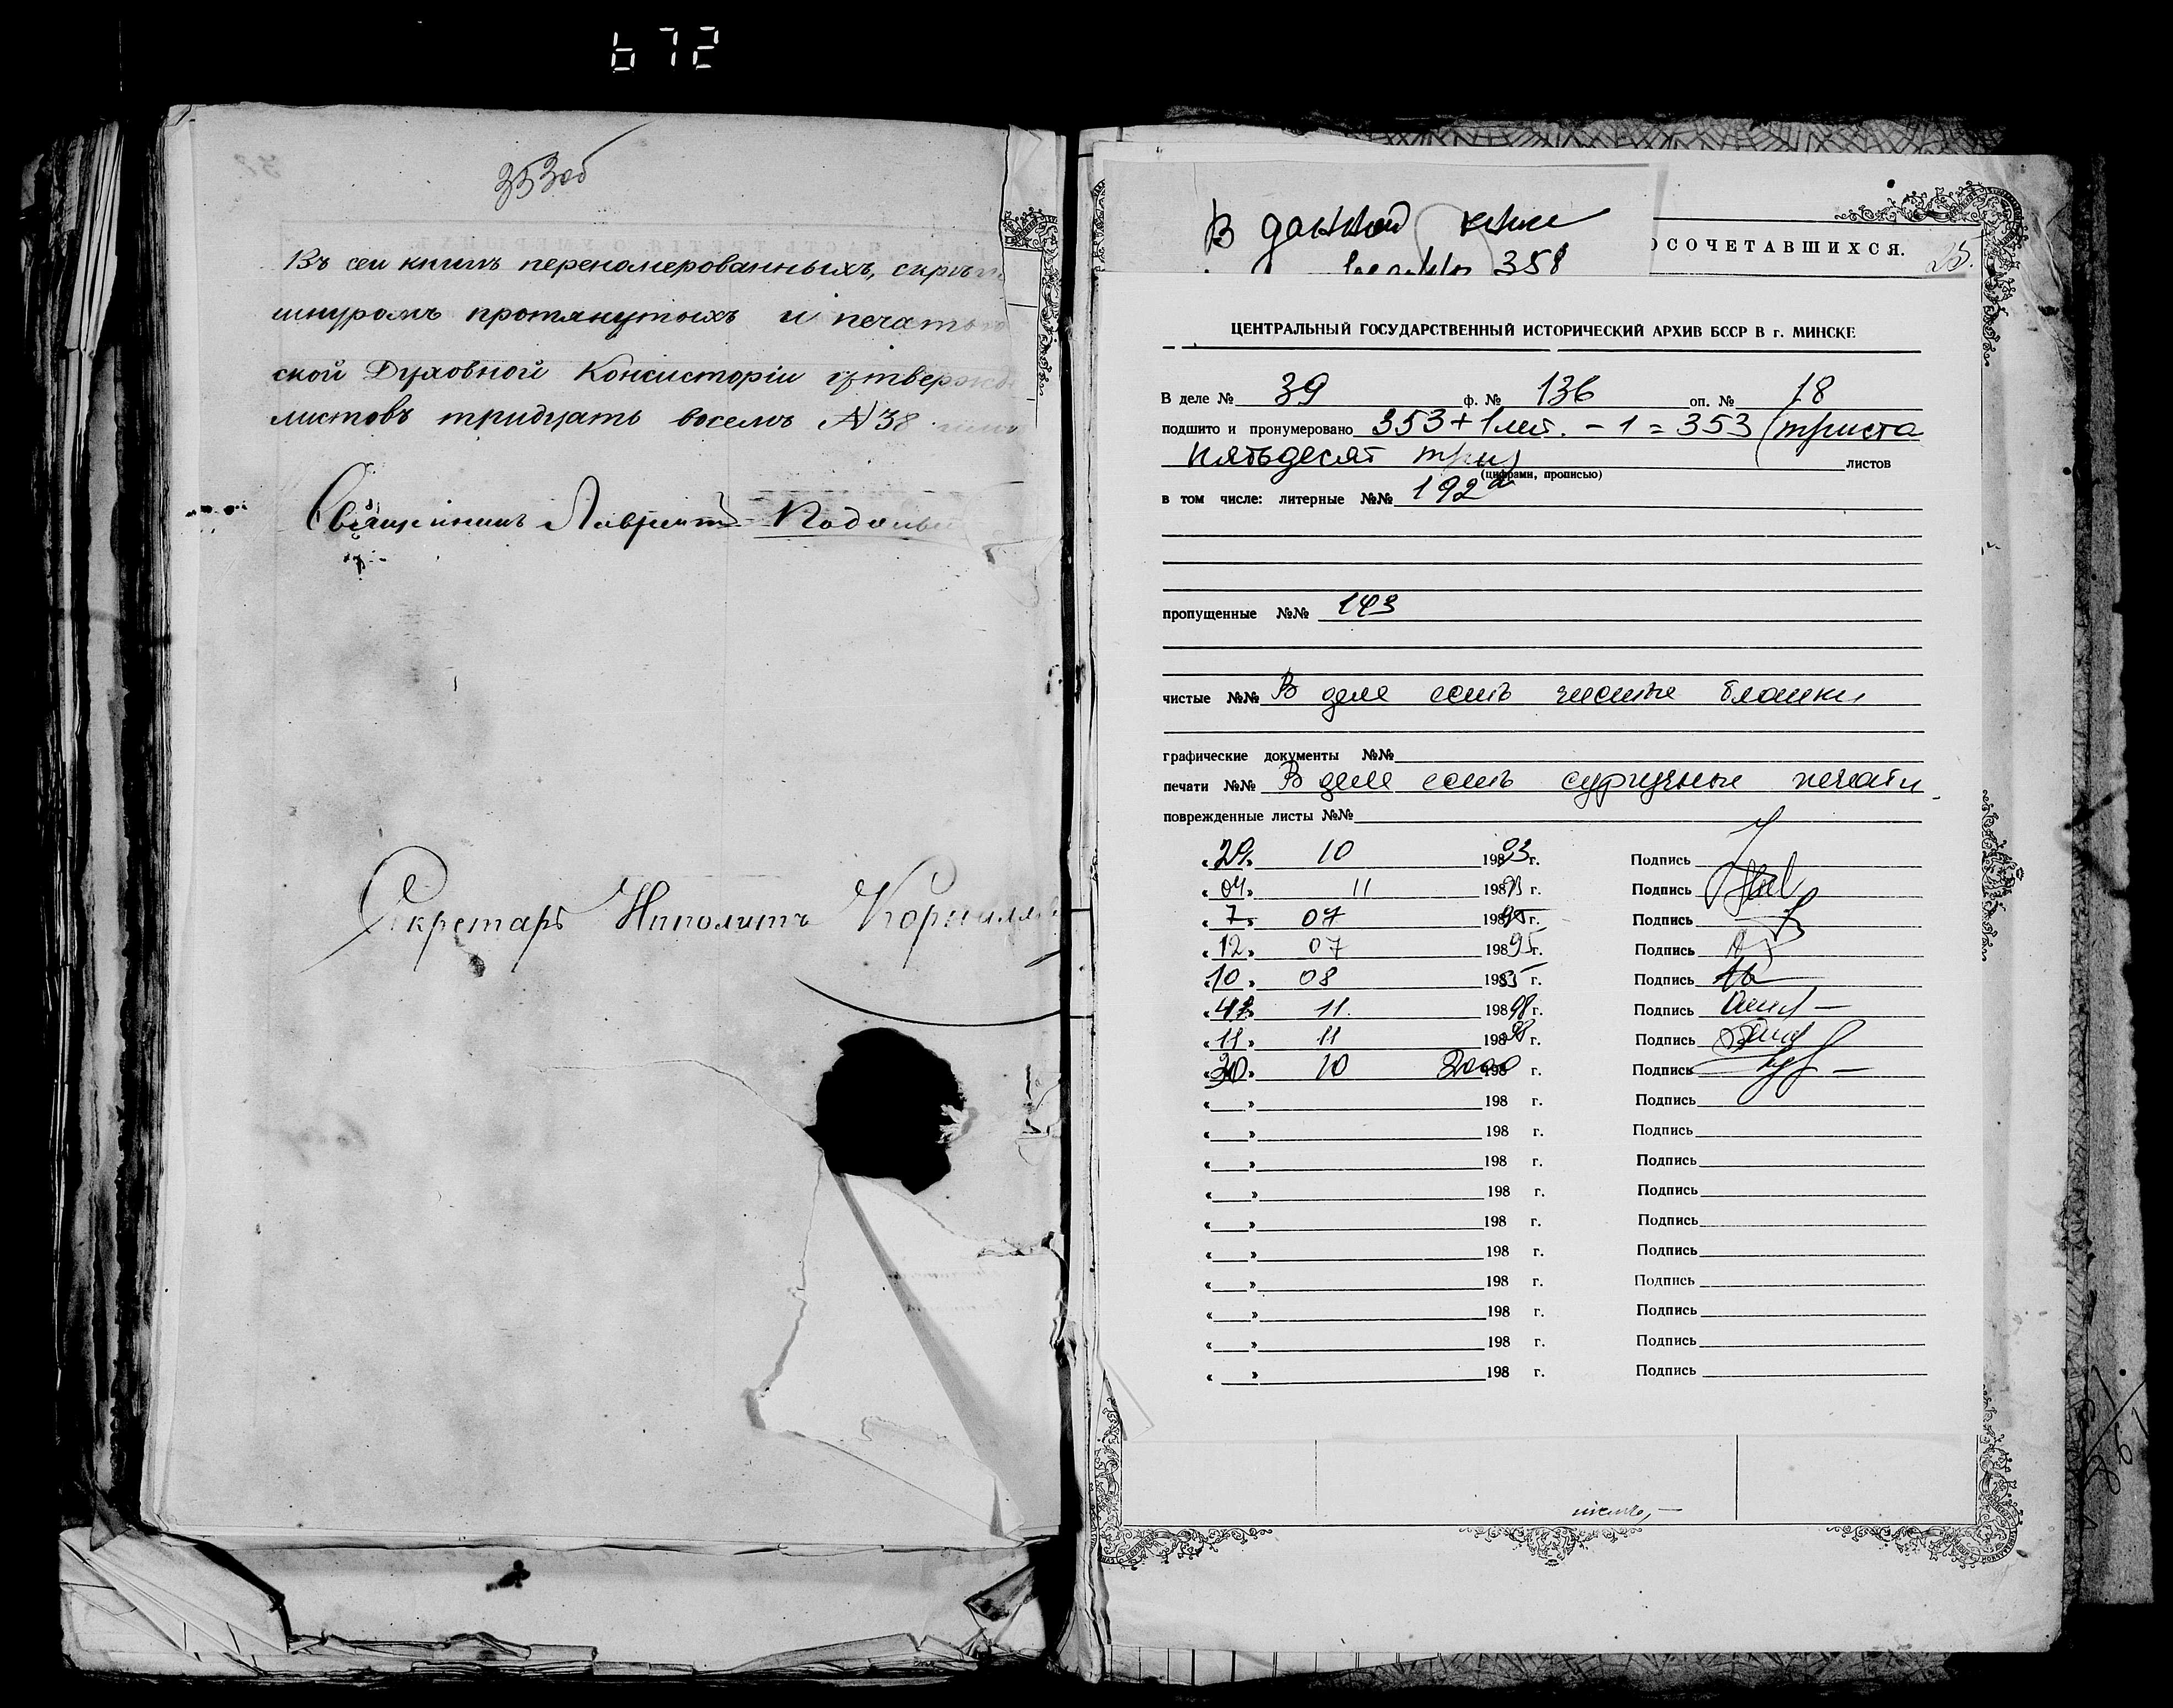 672
353об
Въ сей книгѣ переномерованныхъ, скрѣп
шнуромъ протянутыхъ и печатью
ской Духовной Консисторіи утвержд
листовъ тридцать восемь № 38
Священникъ Лаврентій
Секретарь Ипполитъ
В данной книге
358
ОСОЧЕТАВШИХСЯ.
25.
ЦЕНТРАЛЬНЫЙ ГОСУДАРСТВЕННЫЙ ИСТОРИЧЕСКИЙ АРХИВ БССР В г. МИНСКЕ
В деле № 39 ф. № 136 оп. № 18
подшито и пронумеровано 353+1лит. - 1 = 353 (триста
пятьдесят три) листов
(цифрами, прописью)
в том числе: литерные №№ 192а
пропущенные №№ 143
чистые №№ В деле есть чистые бланки
графические документы №№
печати №№ В деле есть сургучные печати
поврежденные листы №№
«29» 10 1993г. Подпись
«04» 11 198 г. Подпись
«7» 07 19895г. Подпись
«12» 07 19895г. Подпись
«10» 08 1995 г. Подпись
« » 11. 19898г. Подпись
«11» 11 19898 г. Подпись
«20» 10 2000 198 г. Подпись
« » 198 г. Подпись
« » 198 г. Подпись
« » 198 г. Подпись
« » 198 г. Подпись
« » 198 г. Подпись
« » 198 г. Подпись
« » 198 г. Подпись
« » 198 г. Подпись
« » 198 г. Подпись
« » 198 г. Подпись